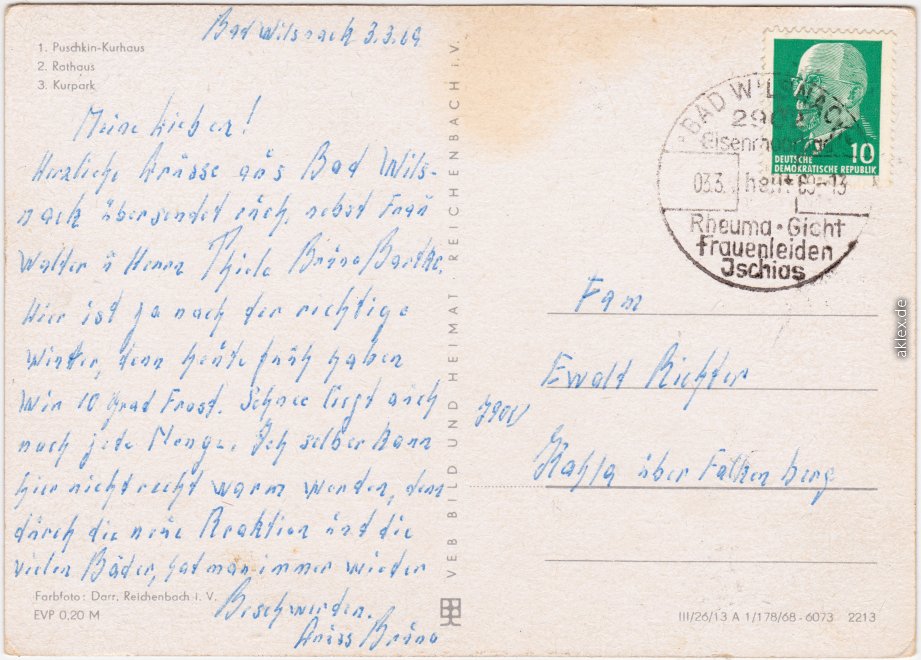 Bad Wilsnack 3.3.69
1. Puschkin-Kurhaus
2. Rathaus
3. Kurpark
Meine Lieben!
Herzliche Grüsse aus Bad Wils-
nack übersendet euch, nebst Frau
Walter u Herrn Thiele Bruno Bartke.
Hier ist ja noch der richtige
Winter, denn heute früh haben
wir 10 Grad Frost. Schnee liegt auch
noch jede Menge. Ich selber kann
hier nicht recht warm werden, denn
durch die neue Reaktion und die
vielen Bäder, hat man immer wieder
Beschwerden.
Gruss Bruno
Farbfoto: Darr, Reichenbach i. V.
EVP 0,20 M
VEB BILD UND HEIMAT, REICHENBACH i. V.
BAD WILSNACK
Eisenmoorbad
03.3. heilt 69-13
Rheuma · Gicht
Frauenleiden
Ischias
10
DEUTSCHE
DEMOKRATISCHE REPUBLIK
Fam
Ewald Richter
7901
Kahla über Falkenberg
III/26/13 A 1/178/68 - 6073 2213
aklex.de